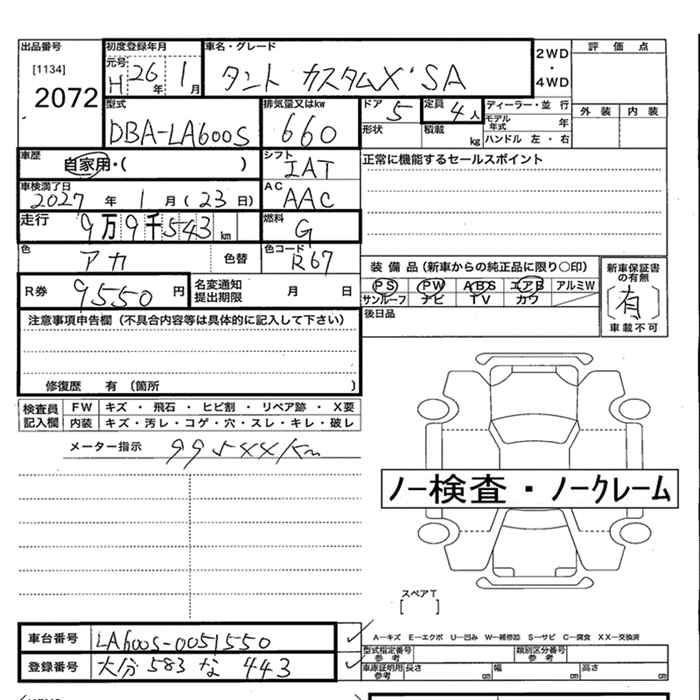 出品番号 初度登録年月 車名・グレード 2WD・4WD 評価点
[1134] 元号 H 26年 1月 タント カスタムX SA
2072 外装 内装
型式 排気量又はkw ドア 5 定員 4人 ディーラー・並行
DBA-LA600S 660 形状 積載 kg モデル年式 年
ハンドル 左・右
車歴 自家用・( ) シフト IAT 正常に機能するセールスポイント
車検満了日 AC
2027年 1月(23日) AAC
走行 9万9千543km 燃料 G
色 アカ 色替 色コード R67 装備品(新車からの純正品に限り○印) 新車保証書の有無
R券 9550円 名変通知提出期限 月 日 PS PW ABS エアB アルミW (有)
サンルーフ ナビ TV カワ 車載不可
注意事項申告欄(不具合内容等は具体的に記入して下さい) 後日品
修復歴 有(箇所 )
検査員 FW キズ・飛石・ヒビ割・リペア跡・X要
記入欄 内装 キズ・汚レ・コゲ・穴・スレ・キレ・破レ
メーター指示 995××km
ノー検査・ノークレーム
スペアT
[ ]
車台番号 LA600S-0051550 A-キズ E-エクボ U-凹み W-補修跡 S-サビ C-腐食 XX-交換済
登録番号 大分 583 な 443 型式指定番号 参考 類別区分番号 参考
車庫証明用 参考 長さ cm 幅 cm 高さ cm